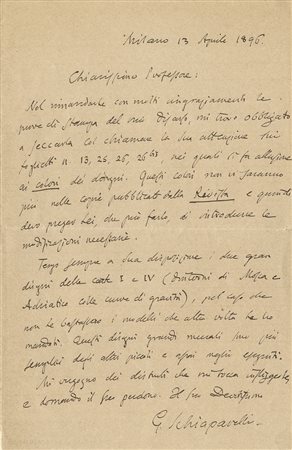 Milano 13 Aprile 1896.
Chiarissimo Professore:
Nel rimandarle con molti ringraziamenti le
prove di stampa del suo Discorso, mi trovo obbligato
a seccarla col chiamare la sua attenzione sui
foglietti n. 13, 25, 26, 26 bis, nei quali si fa allusione
ai colori dei disegni. Questi colori non ci saranno
più nelle copie pubblicate dalla Rivista e quindi
devo pregar Lei, che può farlo, di introdurre le
modificazioni necessarie.
Tengo sempre a sua disposizione i due gran
disegni delle carte I e IV (Dintorni di e
Adriatico colle curve di gravità), pel caso che
non Le bastassero i modelli che altra volta Le ho
mandati. Questi disegni grandi murali son più
semplici degli altri piccoli e assai meglio eseguiti.
Mi vergogno dei disturbi che mi tocca infliggerle,
e domando il suo perdono. Il suo Devotissimo
G. Schiaparelli